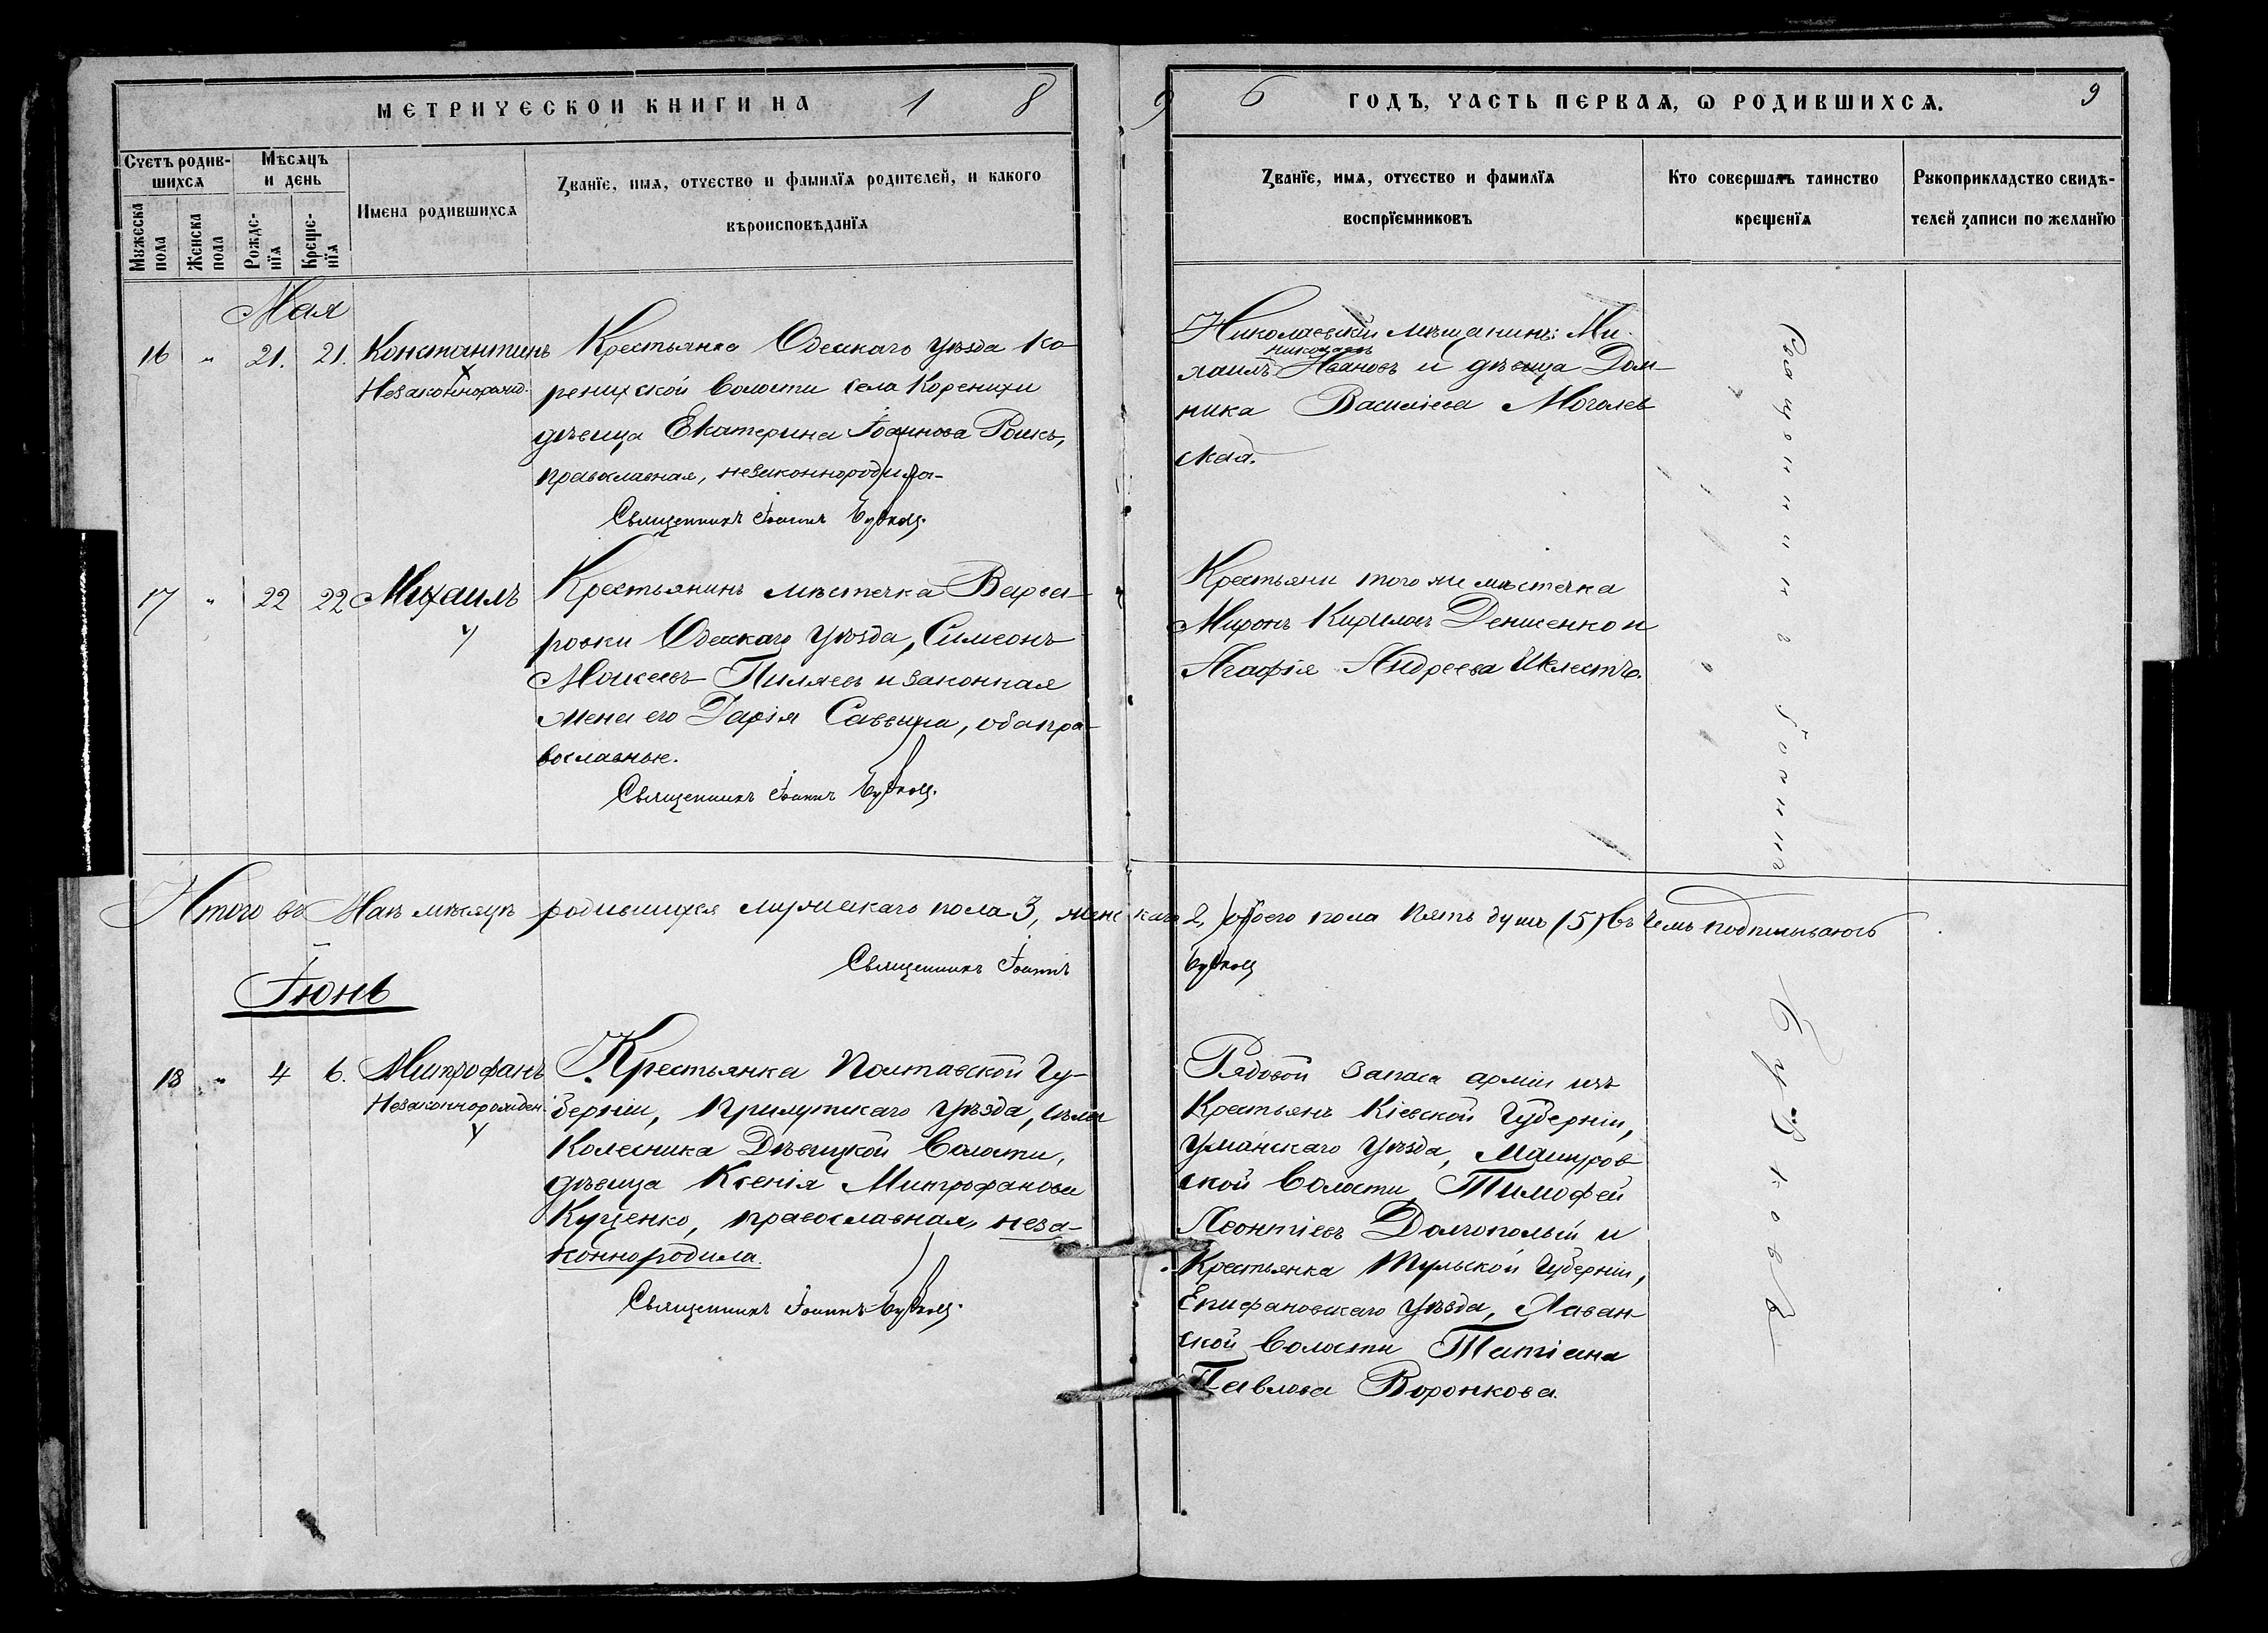 МЕТРИЧЕСКОЙ КНИГИ НА 1 8
9 6 ГОДЪ, ЧАСТЬ ПЕРВАЯ, Ѡ РОДИВШИХСЯ. 9
Счетъ родив-
шихся
Мужеска
пола
Женска
пола
Мѣсяцъ
и день
Рожде-
нія
Креще-
нія
Имена родившихся
Званіе, имя, отчество и фамилія родителей, и какого
вѣроисповѣданія
Званіе, имя, отчество и фамилія
воспріемниковъ
Кто совершалъ таинство
крещенія
Рукоприкладство свидѣ-
телей записи по желанію
Мая
16 " 21. 21. Константинъ
Незаконнорожд.
Крестьянка Одесскаго уѣзда Ко-
ренихской волости села Коренихи
дѣвица Екатерина Іоаннова
православная, незаконнородила-
Священникъ Іоаннъ
Николаевскій мѣщанинъ: Ми-
Николаевъ
хаилъ Ивановъ и дѣвица Дом-
ника Васильева Моголев-
ская.
17 " 22 22 Михаилъ
Крестьянинъ мѣстечка Варва-
ровки Одесскаго уѣзда, Симеонъ
Моисеевъ Пиляев и законная
жена его Дарія Саввина, оба пра-
вославные.
Священникъ Іоаннъ
Крестьяни того же мѣстечка
Миронъ Кириловъ Денисенко и
Агафія Андреева
Итого въ Маѣ мѣсяцѣ родившихся мужескаго пола 3, женскаго 2, обоего пола пять душъ (5) въ чемъ подписываюсь
Священникъ Іоаннъ
Іюнь
18 " 4 6. Митрофанъ
Незаконнорожден.
Крестьянка Полтавской Гу-
берніи, Прилукскаго уѣзда, села
Колесника Дѣвицкой волости,
дѣвица Ксенія Митрофанова
Куценко, православная, неза-
коннородила.
Священникъ Іоаннъ
Рядовой запаса арміи изъ
Крестьянъ Кіевской Губерніи,
Уманскаго уѣзда, Машуров-
ской волости Тимофей
Леонтіевъ Долгополый и
Крестьянка Тульской Губерніи,
Епифановскаго уѣзда, Лаван-
ской волости Татіана
Павлова Воронкова.
Священникъ Іоаннъ